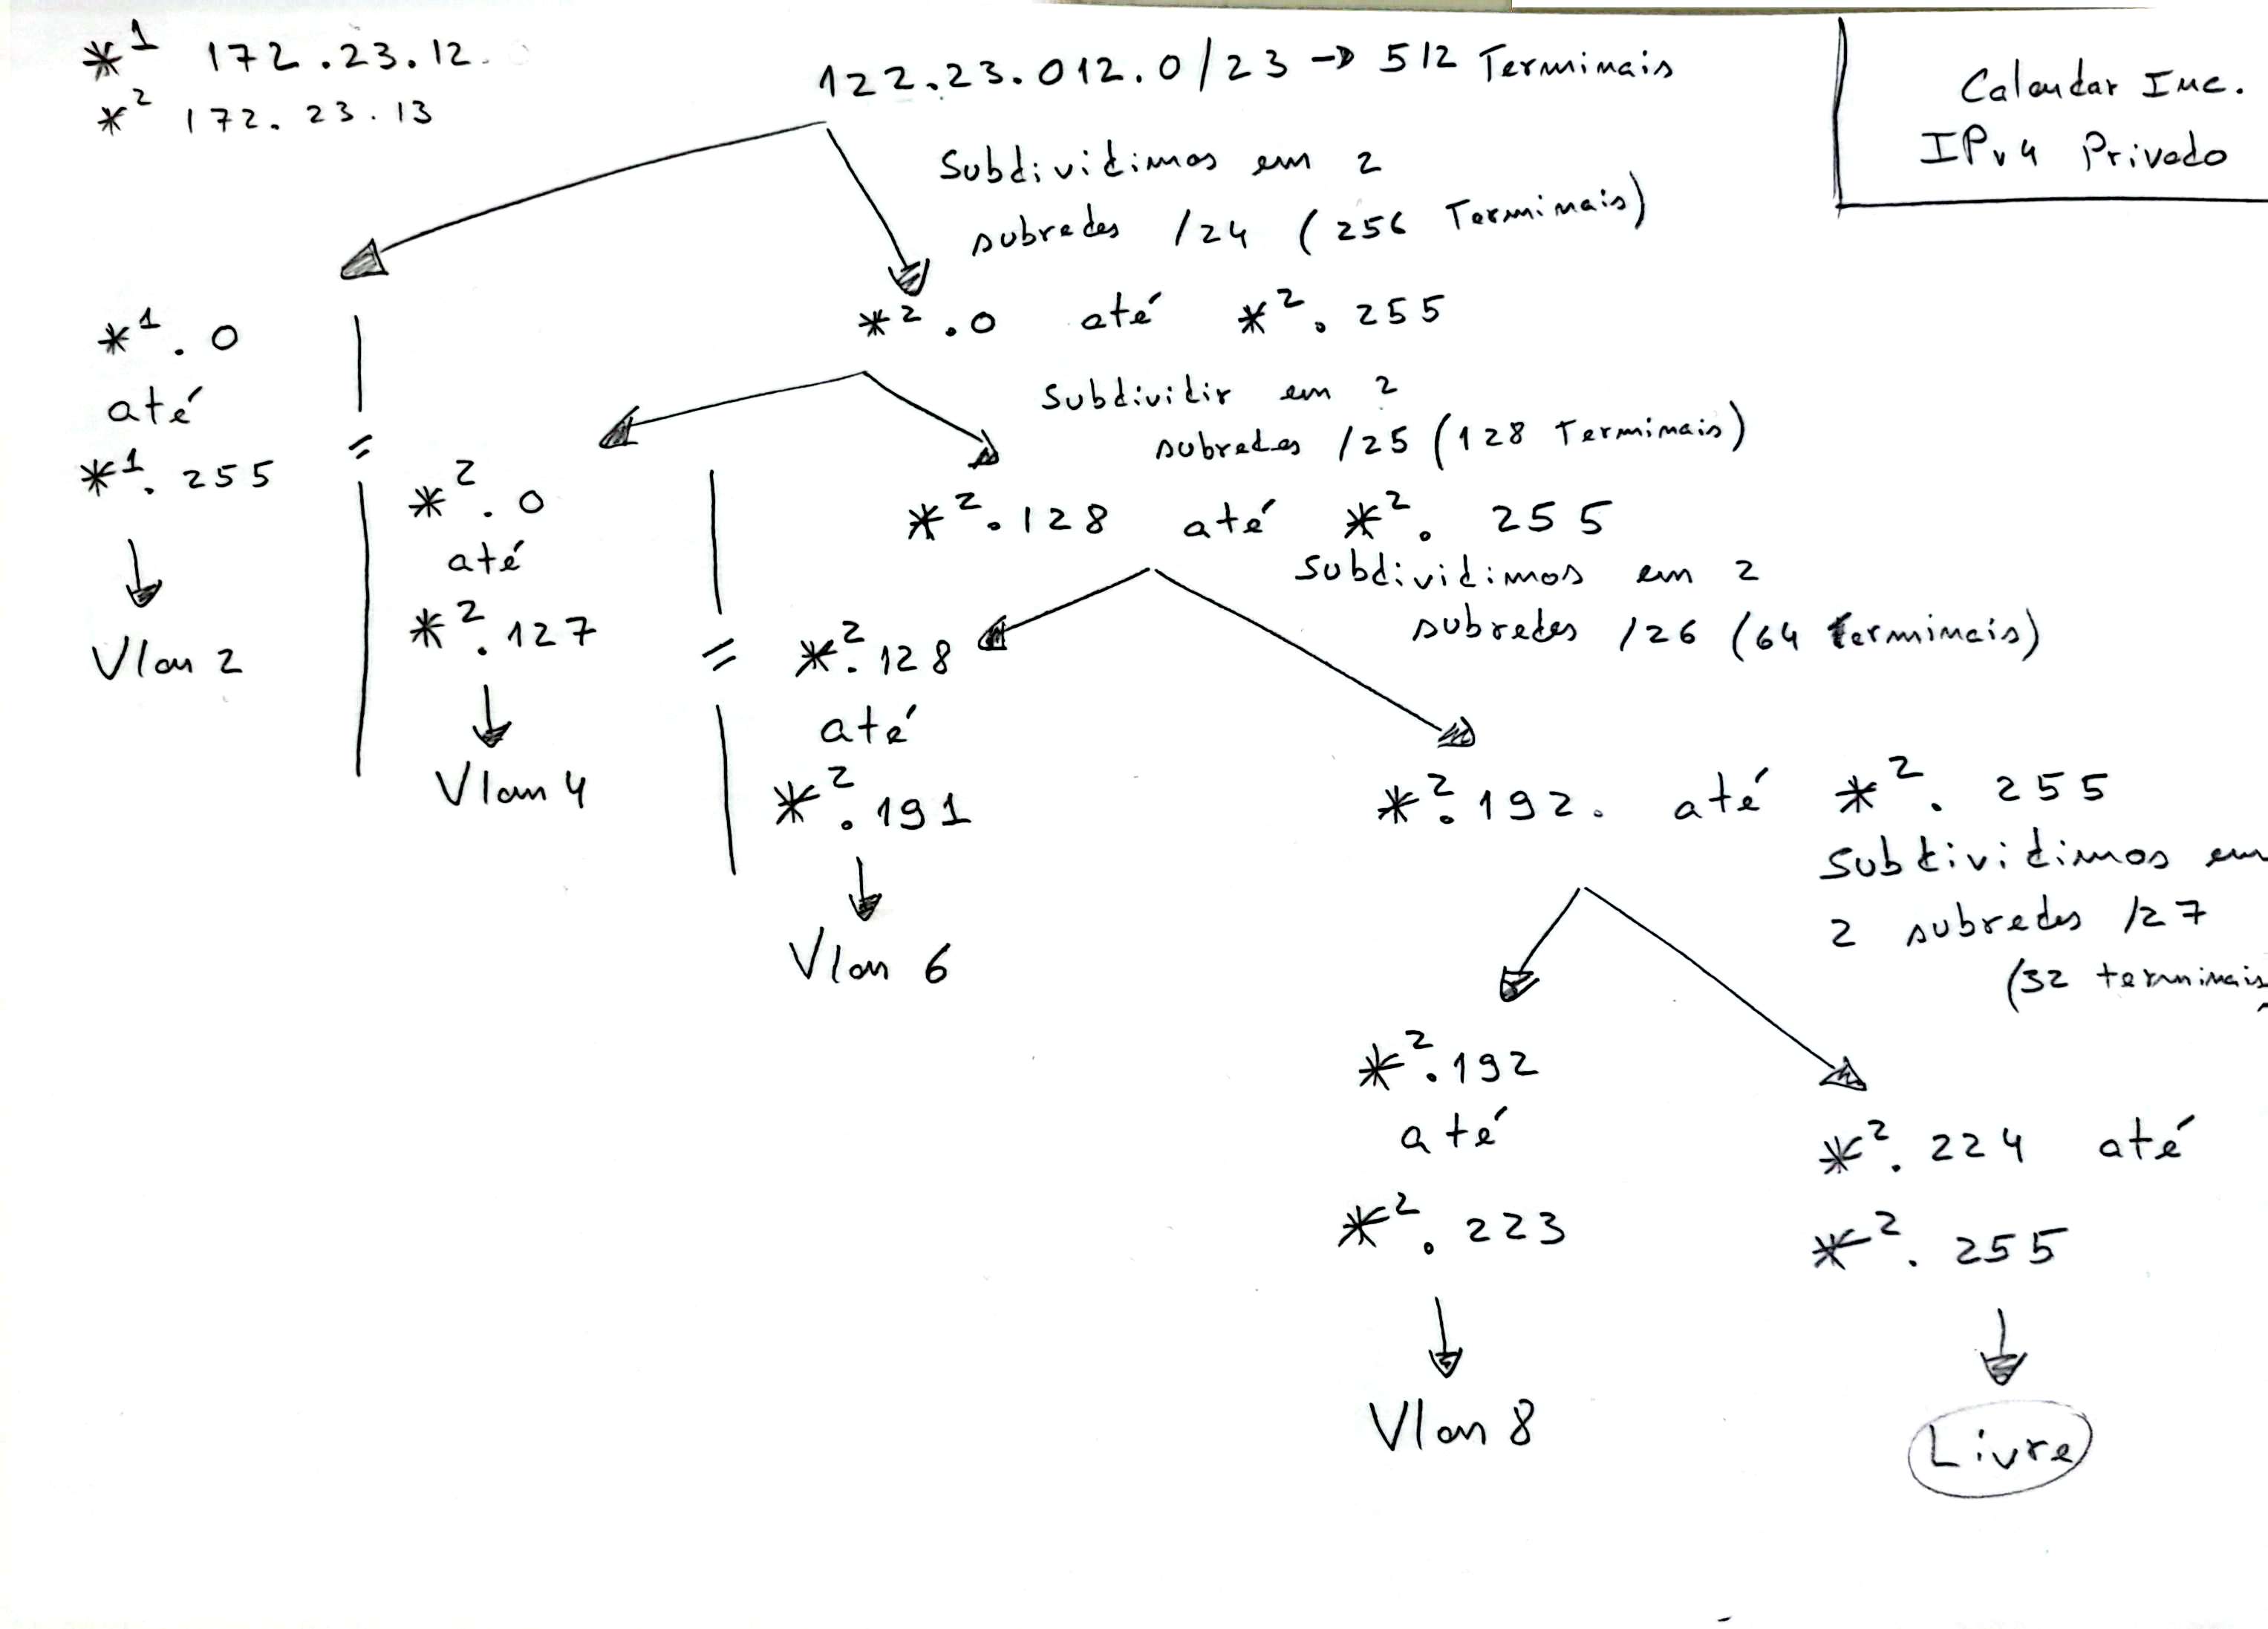 *1 172.23.12.
*2 172.23.13
122.23.012.0/23 -> 512 Terminais
Calendar Inc.
IPv4 Privado
Subdividimos em 2
subredes /24 (256 Terminais)
*1.0
até
*1.255
Vlan 2
*2.0 até *2.255
Subdividir em 2
subredes /25 (128 Terminais)
*2.0
até
*2.127
Vlan 4
*2.128 até *2.255
Subdividimos em 2
subredes /26 (64 terminais)
*2.128
até
*2.191
Vlan 6
*2.192. até *2.255
Subdividimos em
2 subredes /27
(32 terminais
*2.192
até
*2.223
Vlan 8
*2.224 até
*2.255
Livre